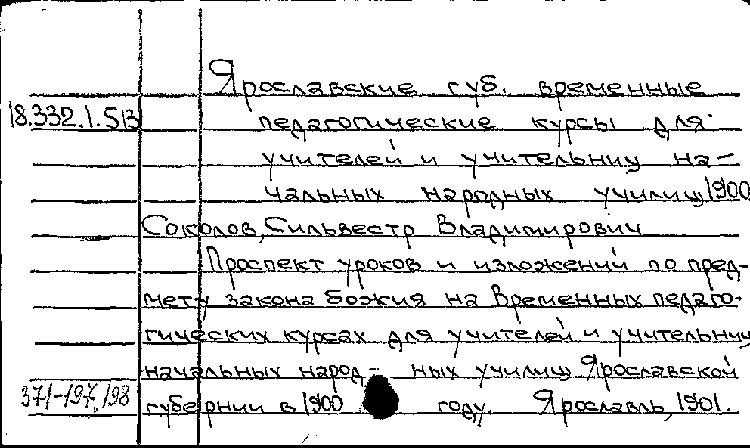 Ярославские губ. временные
18.332.1.513
педагогические курсы для
учителей и учительниц на-
чальных народных училищ 1900
Соколов, Сильвестр Владимирович
Проспект уроков и изложений по пред-
мету закона божия на Временных педаго-
гических курсах для учителей и учительниц
начальных народ- ных училищ Ярославской
371-197,198
губернии в 1900 году. Ярославль, 1901.